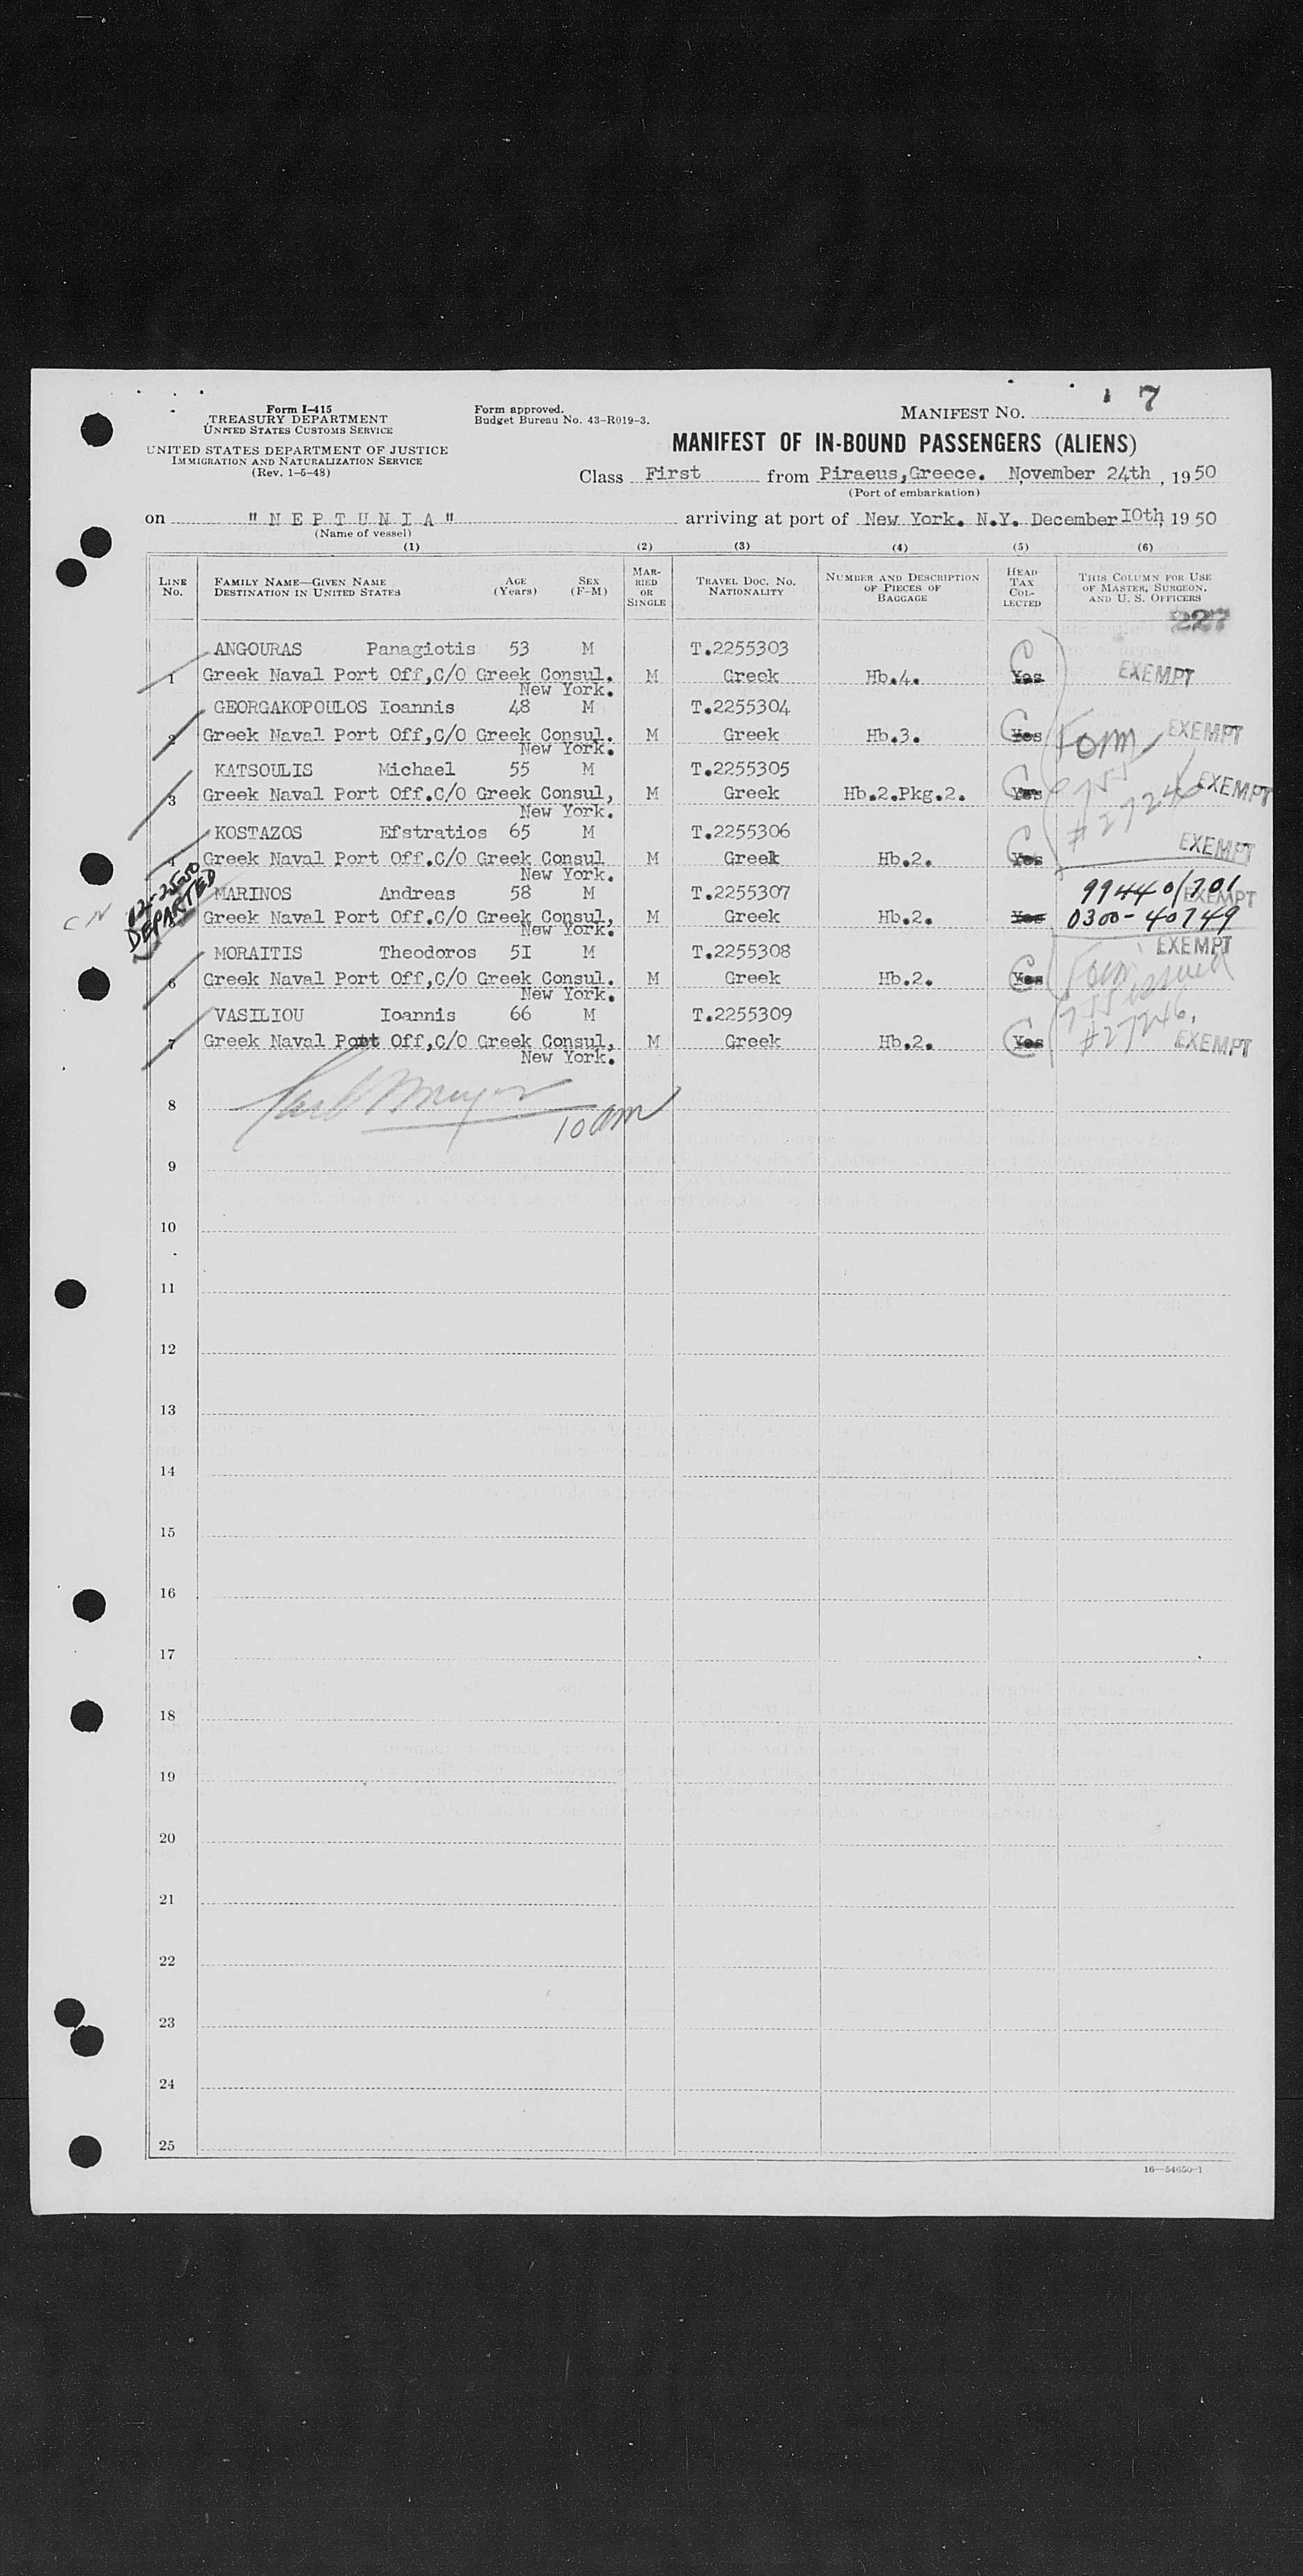 7
Form I-415
TREASURY DEPARTMENT
UNITED STATES CUSTOMS SERVICE
UNITED STATES DEPARTMENT OF JUSTICE
IMMIGRATION AND NATURALIZATION SERVICE
(Rev. 1-5-48)
Form approved.
Budget Bureau No. 43-R019-3.
MANIFEST NO.
MANIFEST OF IN-BOUND PASSENGERS (ALIENS)
Class First from Piraeus,Greece. November 24th , 1950
(Port of embarkation)
on "NEPTUNIA" arriving at port of New York. N.Y. December I0th, 1950
(Name of vessel)
(1) (2) (3) (4) (5) (6)
LINE NO.
FAMILY NAME—GIVEN NAME
DESTINATION IN UNITED STATES
AGE (Years)
SEX (F-M)
MARRIED OR SINGLE
TRAVEL DOC. NO. NATIONALITY
NUMBER AND DESCRIPTION OF PIECES OF BAGGAGE
HEAD TAX COLLECTED
THIS COLUMN FOR USE OF MASTER, SURGEON, AND U. S. OFFICERS
227
ANGOURAS Panagiotis 53 M T.2255303
1 Greek Naval Port Off,C/O Greek Consul. M Greek Hb.4. Yes EXEMPT
New York.
GEORGAKOPOULOS Ioannis 48 M T.2255304
2 Greek Naval Port Off,C/O Greek Consul. M Greek Hb.3. Yes Form EXEMPT
New York.
KATSOULIS Michael 55 M T.2255305
3 Greek Naval Port Off.C/O Greek Consul, M Greek Hb.2.Pkg.2. Yes 755 EXEMPT
New York. #27246
KOSTAZOS Efstratios 65 M T.2255306
4 Greek Naval Port Off.C/O Greek Consul M Greek Hb.2. Yes EXEMPT
New York.
MARINOS Andreas 58 M T.2255307 99440/701 EXEMPT
DEPARTED
CN
Greek Naval Port Off.C/O Greek Consul, M Greek Hb.2. Yes 0300-40749
New York.
MORAITIS Theodoros 5I M T.2255308 EXEMPT
6 Greek Naval Port Off,C/O Greek Consul. M Greek Hb.2. Yes Form issued
New York. 755
VASILIOU Ioannis 66 M T.2255309 #27246,
7 Greek Naval Port Off,C/O Greek Consul, M Greek Hb.2. Yes EXEMPT
New York.
8
10 am
9
10
11
12
13
14
15
16
17
18
19
20
21
22
23
24
25
16—54650-1